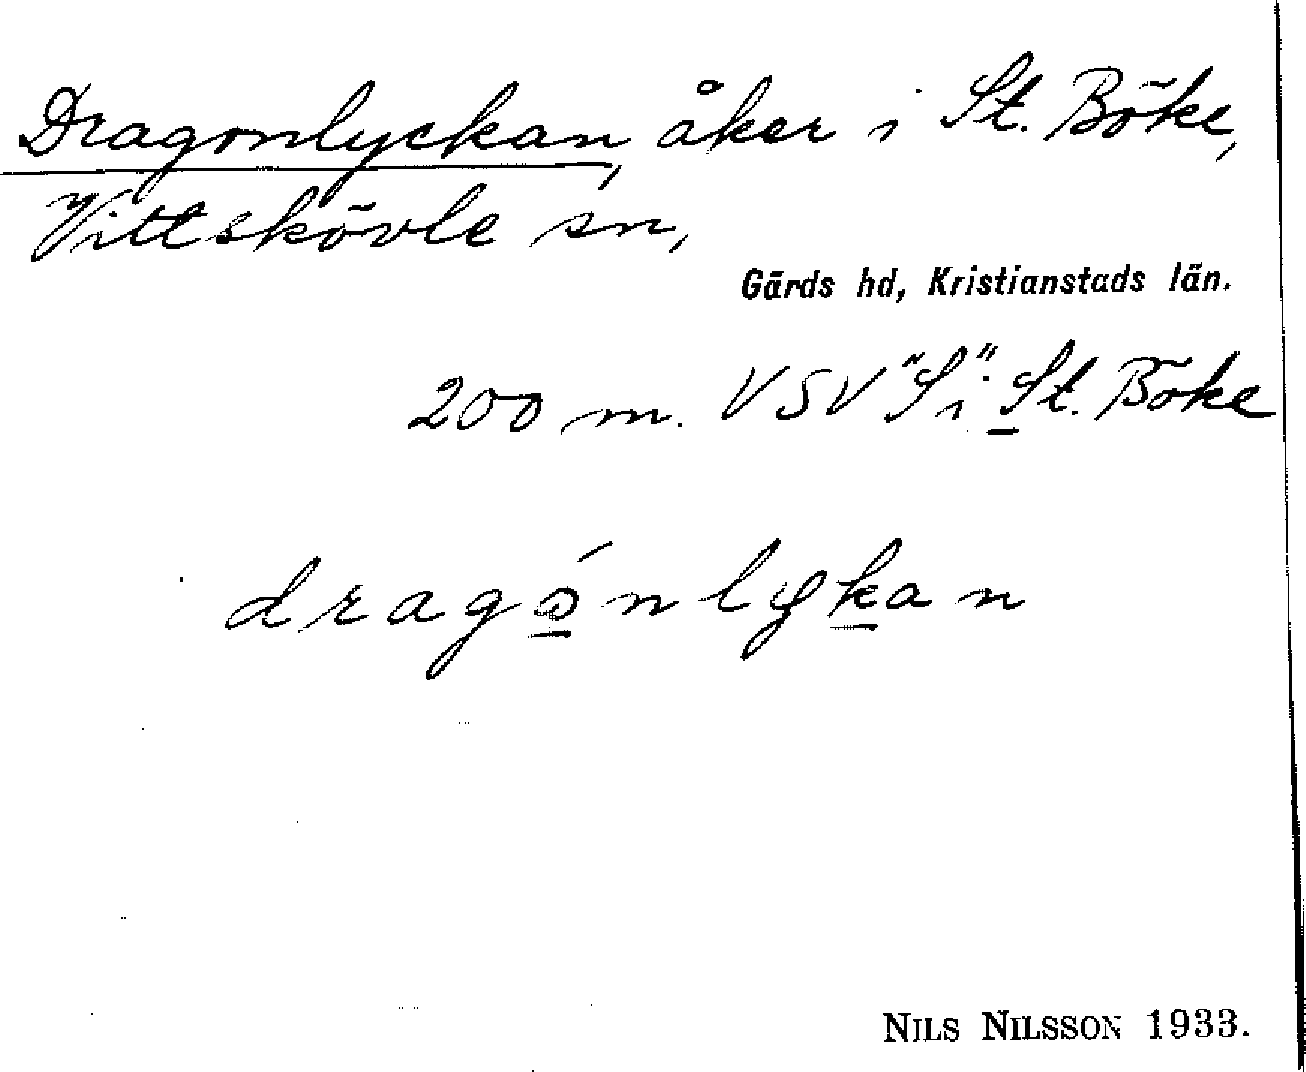 Dragonlyckan, åker i St. Böke,
Vittskövle sn,
Gärds hd, Kristianstads län.
200 m. VSV "S i" St. Böke
dragónlykan
NILS NILSSON 1933.